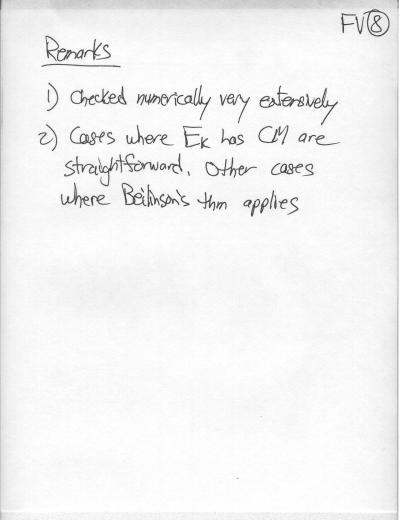 FV 8
Remarks
1) Checked numerically very extensively
2) Cases where Ek has CM are
straightforward. Other cases
where Beilinson's thm applies